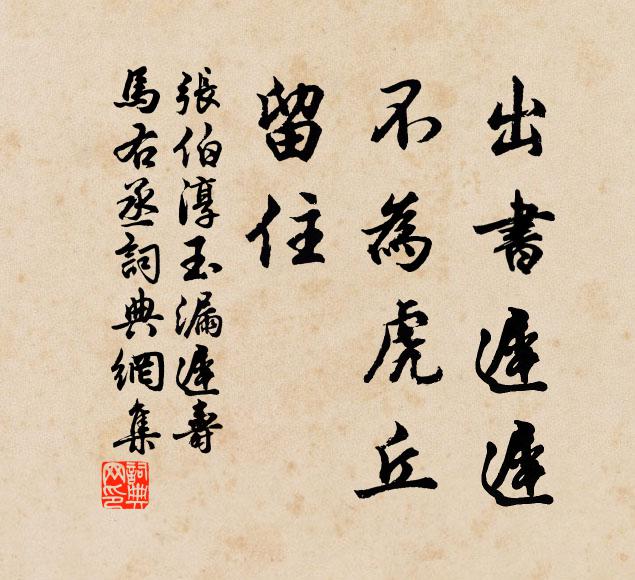 出書遲遲
不為虎丘
留住
張伯淳玉漏遲壽
馬右丞詞典網集
詞典網印